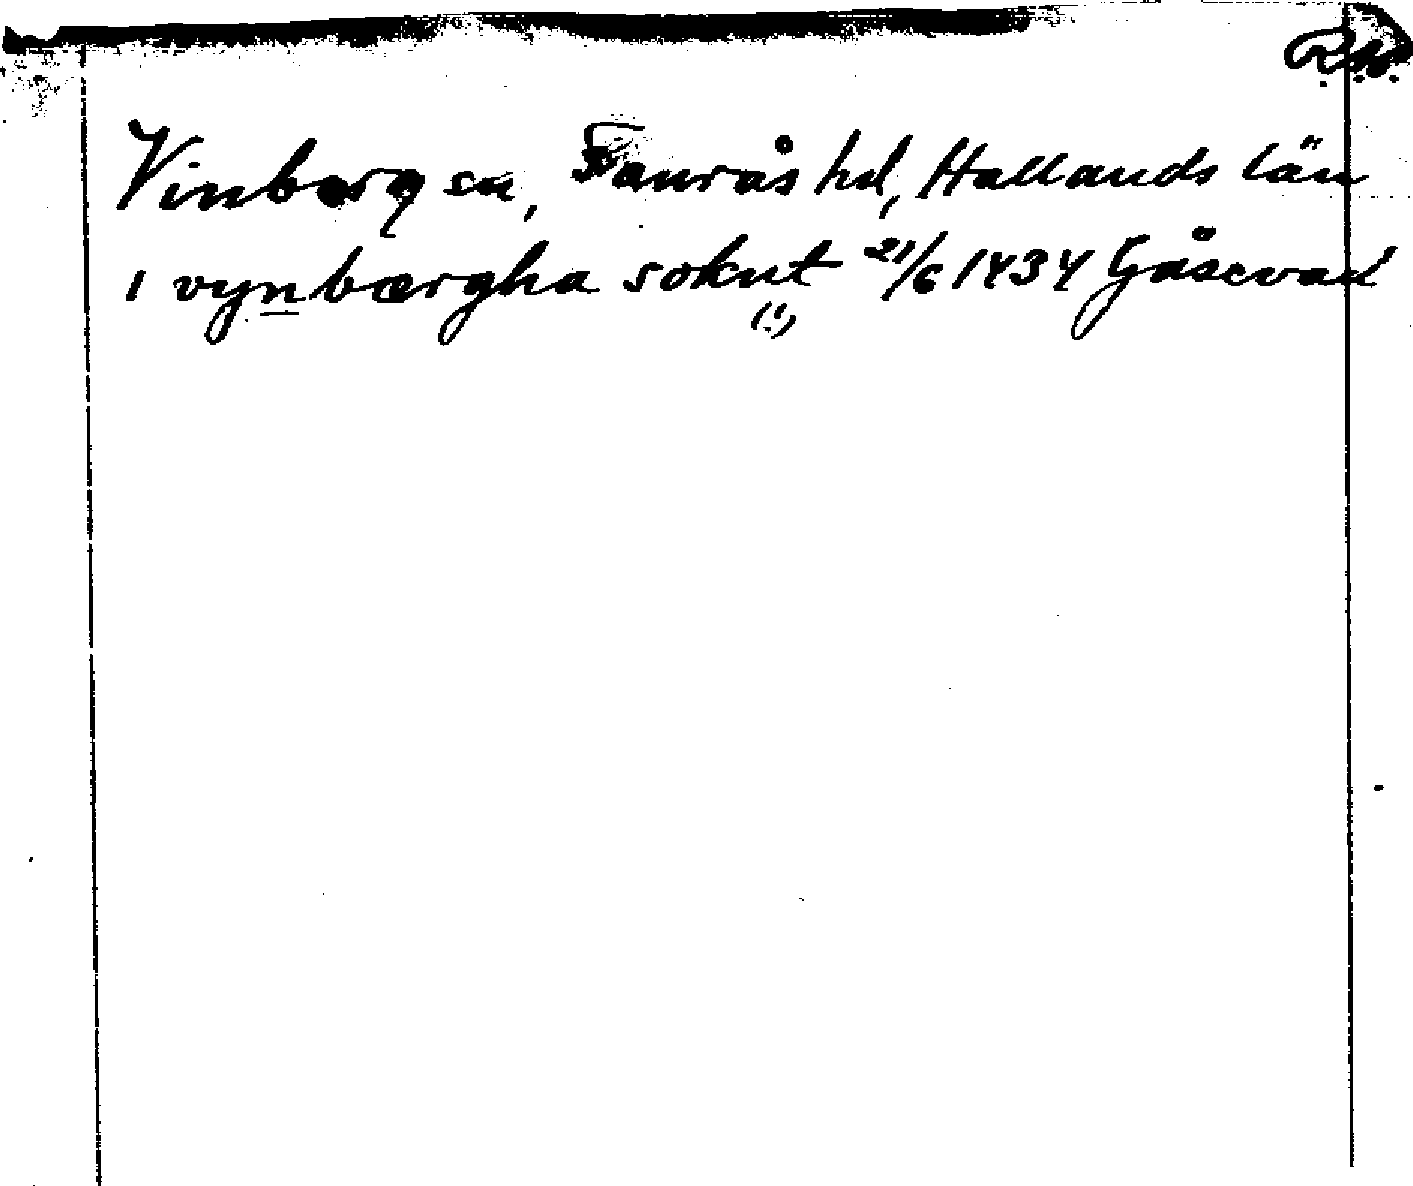 Vinberg sn, Faurås hd, Hallands län
i vynbærgha soknt 21/6 1434 Gåsevad
(!)